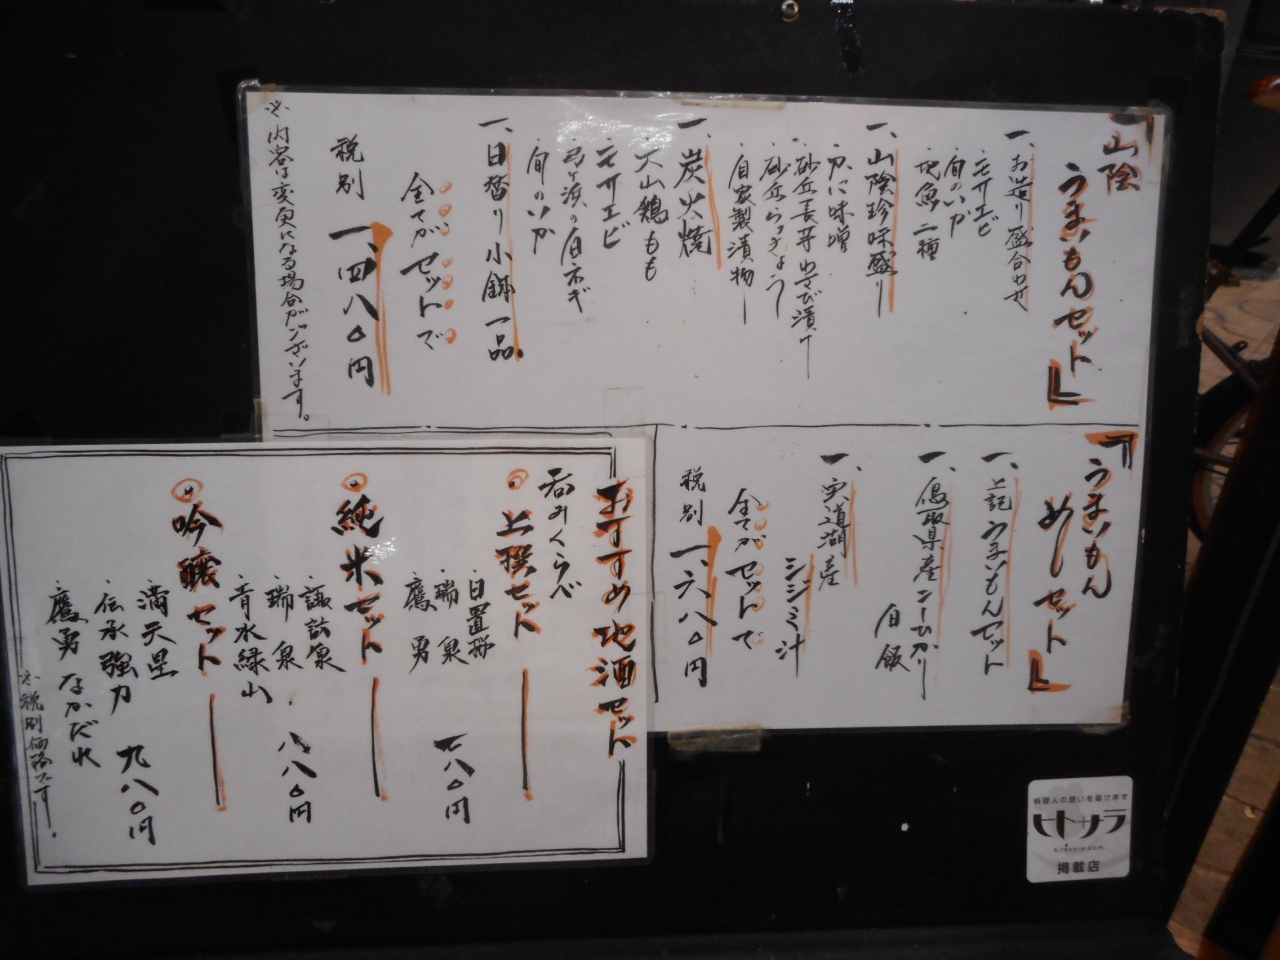 『山陰
うまいもんセット』
一、お造り盛合わせ
・モサエビ
・旬のいか
・地魚二種
一、山陰珍味盛り
・かに味噌
・砂丘長芋わさび漬け
・砂丘らっきょう
・自家製漬物
一、炭火焼
・大山鶏もも
・モサエビ
・弓ヶ浜の白ネギ
・旬のいか
一、日替り小鉢一品
全てがセットで
税別 一、四八〇円
※内容は変更になる場合がございます。
『うまいもん
めしセット』
一、上記うまいもんセット
一、鳥取県産こしひかり
白飯
一、宍道湖産
シジミ汁
全てがセットで
税別 一、六八〇円
おすすめ地酒セット
呑みくらべ
上撰セット
・日置桜
・瑞泉
・鷹勇
七八〇円
純米セット
・諏訪泉
・瑞泉
・青水緑山
八八〇円
吟醸セット
・満天星
・伝承強力
・鷹勇なかだれ
九八〇円
※税別価格です。
料理人の想いを届けます
ヒトサラ
hitosara.com
掲載店